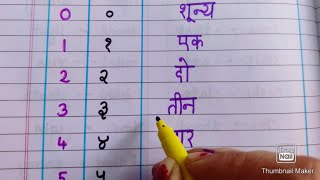 0 ० शून्य
1 १ एक
2 २ दो
3 ३ तीन
4 ४
5 ५
Thumbnail Maker